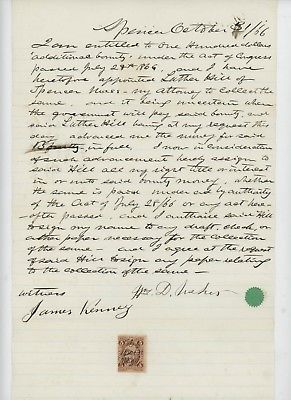 Spencer October 1/66
I am entitled to One Hundred dollars
additional bounty, under the Act of Congress
passed July 28th 1866, and I have
heretofore appointed Luther Hill of
Spencer Mass. my Attorney to Collect the
same and it being uncertain when
the government will pay said bounty, and
said Luther Hill having at my request this
day advanced me the money for said
Bounty in full. I now in consideration
of such advancement hereby assign to
said Hill all my right title or interest
in or unto said bounty money, whether
the same is paid under authority
of the Act of July 28/66 or any act here-
after passed, and I authorise said Hill
to sign my name to any draft, check, or
other paper necessary for the collection
of the same and I agree at the request
of said Hill to sign any paper relating
to the collection of the same
Wm D.
witness
James Kenney